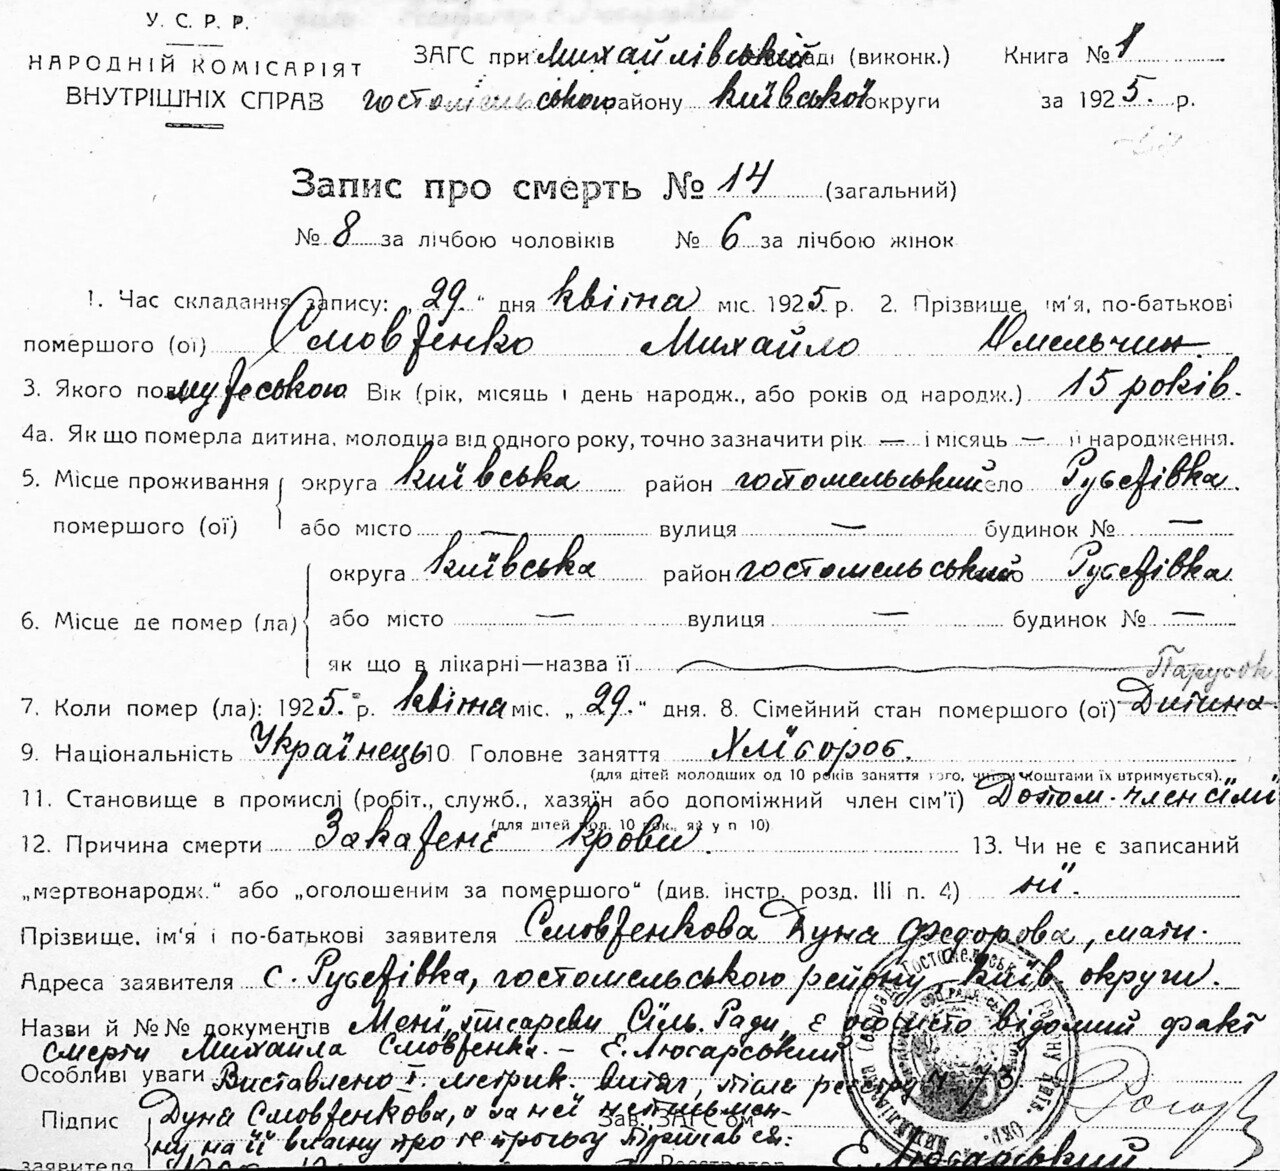 У. С. Р. Р.
НАРОДНІЙ КОМІСАРІЯТ
ВНУТРІШНІХ СПРАВ
ЗАГС при Михайлівській раді (виконк.)
гостомельського району Київської округи
Книга № 1
за 1925. р.
Запис про смерть № 14 (загальний)
№ 8 за лічбою чоловіків № 6 за лічбою жінок
1. Час складання запису: „29." дня квітна міс. 1925 р. 2. Прізвище, ім'я, по-батькові
помершого (ої) Смовженко Михайло Омельчин
3. Якого пол мужеською Вік (рік, місяць і день народж., або років од народж.) 15 років.
4а. Як що померла дитина, молодша від одного року, точно зазначити рік — і місяць — її народження.
5. Місце проживання округа київська район гостомельський село Рубежівка
помершого (ої) або місто — вулиця — будинок № —
округа київська район гостомельський Рубежівка
6. Місце де помер (ла) або місто — вулиця — будинок № —
як що в лікарні—назва її
7. Коли помер (ла): 1925. р. квітна міс. „29." дня. 8. Сімейний стан помершого (ої) Дитина
9. Національність Українець 10 Головне заняття Хлібороб.
(для дітей молодших од 10 років заняття того, чиїми коштами їх втримується).
11. Становище в промислі (робіт., служб., хазяїн або допоміжний член сім'ї) Допом. член сімї
(для дітей мол. 10 рок., як у п 10)
12. Причина смерти Закажене крови. 13. Чи не є записаний
„мертвонародж." або „оголошеним за помершого" (див. інстр. розд. III п. 4) ні.
Прізвище, ім'я і по-батькові заявителя Смовженкова Дуна Федорова, мати.
Адреса заявителя с. Рубежівка, гостомельського району Київ округи.
Назви й №№ документів Мені, писареви Сіль. Ради, є особисто відомий факт
смерти Михайла Смовженка. – Є. Люсарський
Особливі уваги Виставлено І. метрик. витяг, після реєстру № 73
Підпис Дуна Смовженкова, а за неї неписьмен-
ну, на її власну про те прозьбу підписався:
заявителя Є. Люсарський
Зав. ЗАГС'ом
Реєстратор